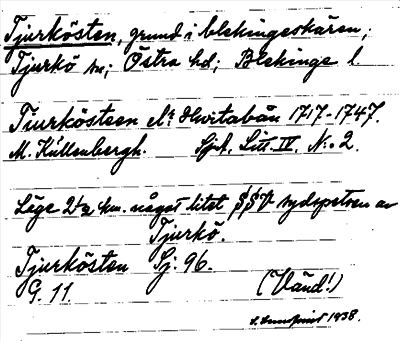 Tjurkösten, grund i blekingeskären;
Tjurkö sn; Östra hd; Blekinge l.
Tiurkösteen elr Hvitabån 1717-1747.
M. Küllenbergh. Sjök. Litt. IV. No. 2.
Läge 2½ km. något litet SSV sydspetsen av
Tjurkö.
Tjurkösten Sj. 96.
G. 11. (Vänd!)
1938.